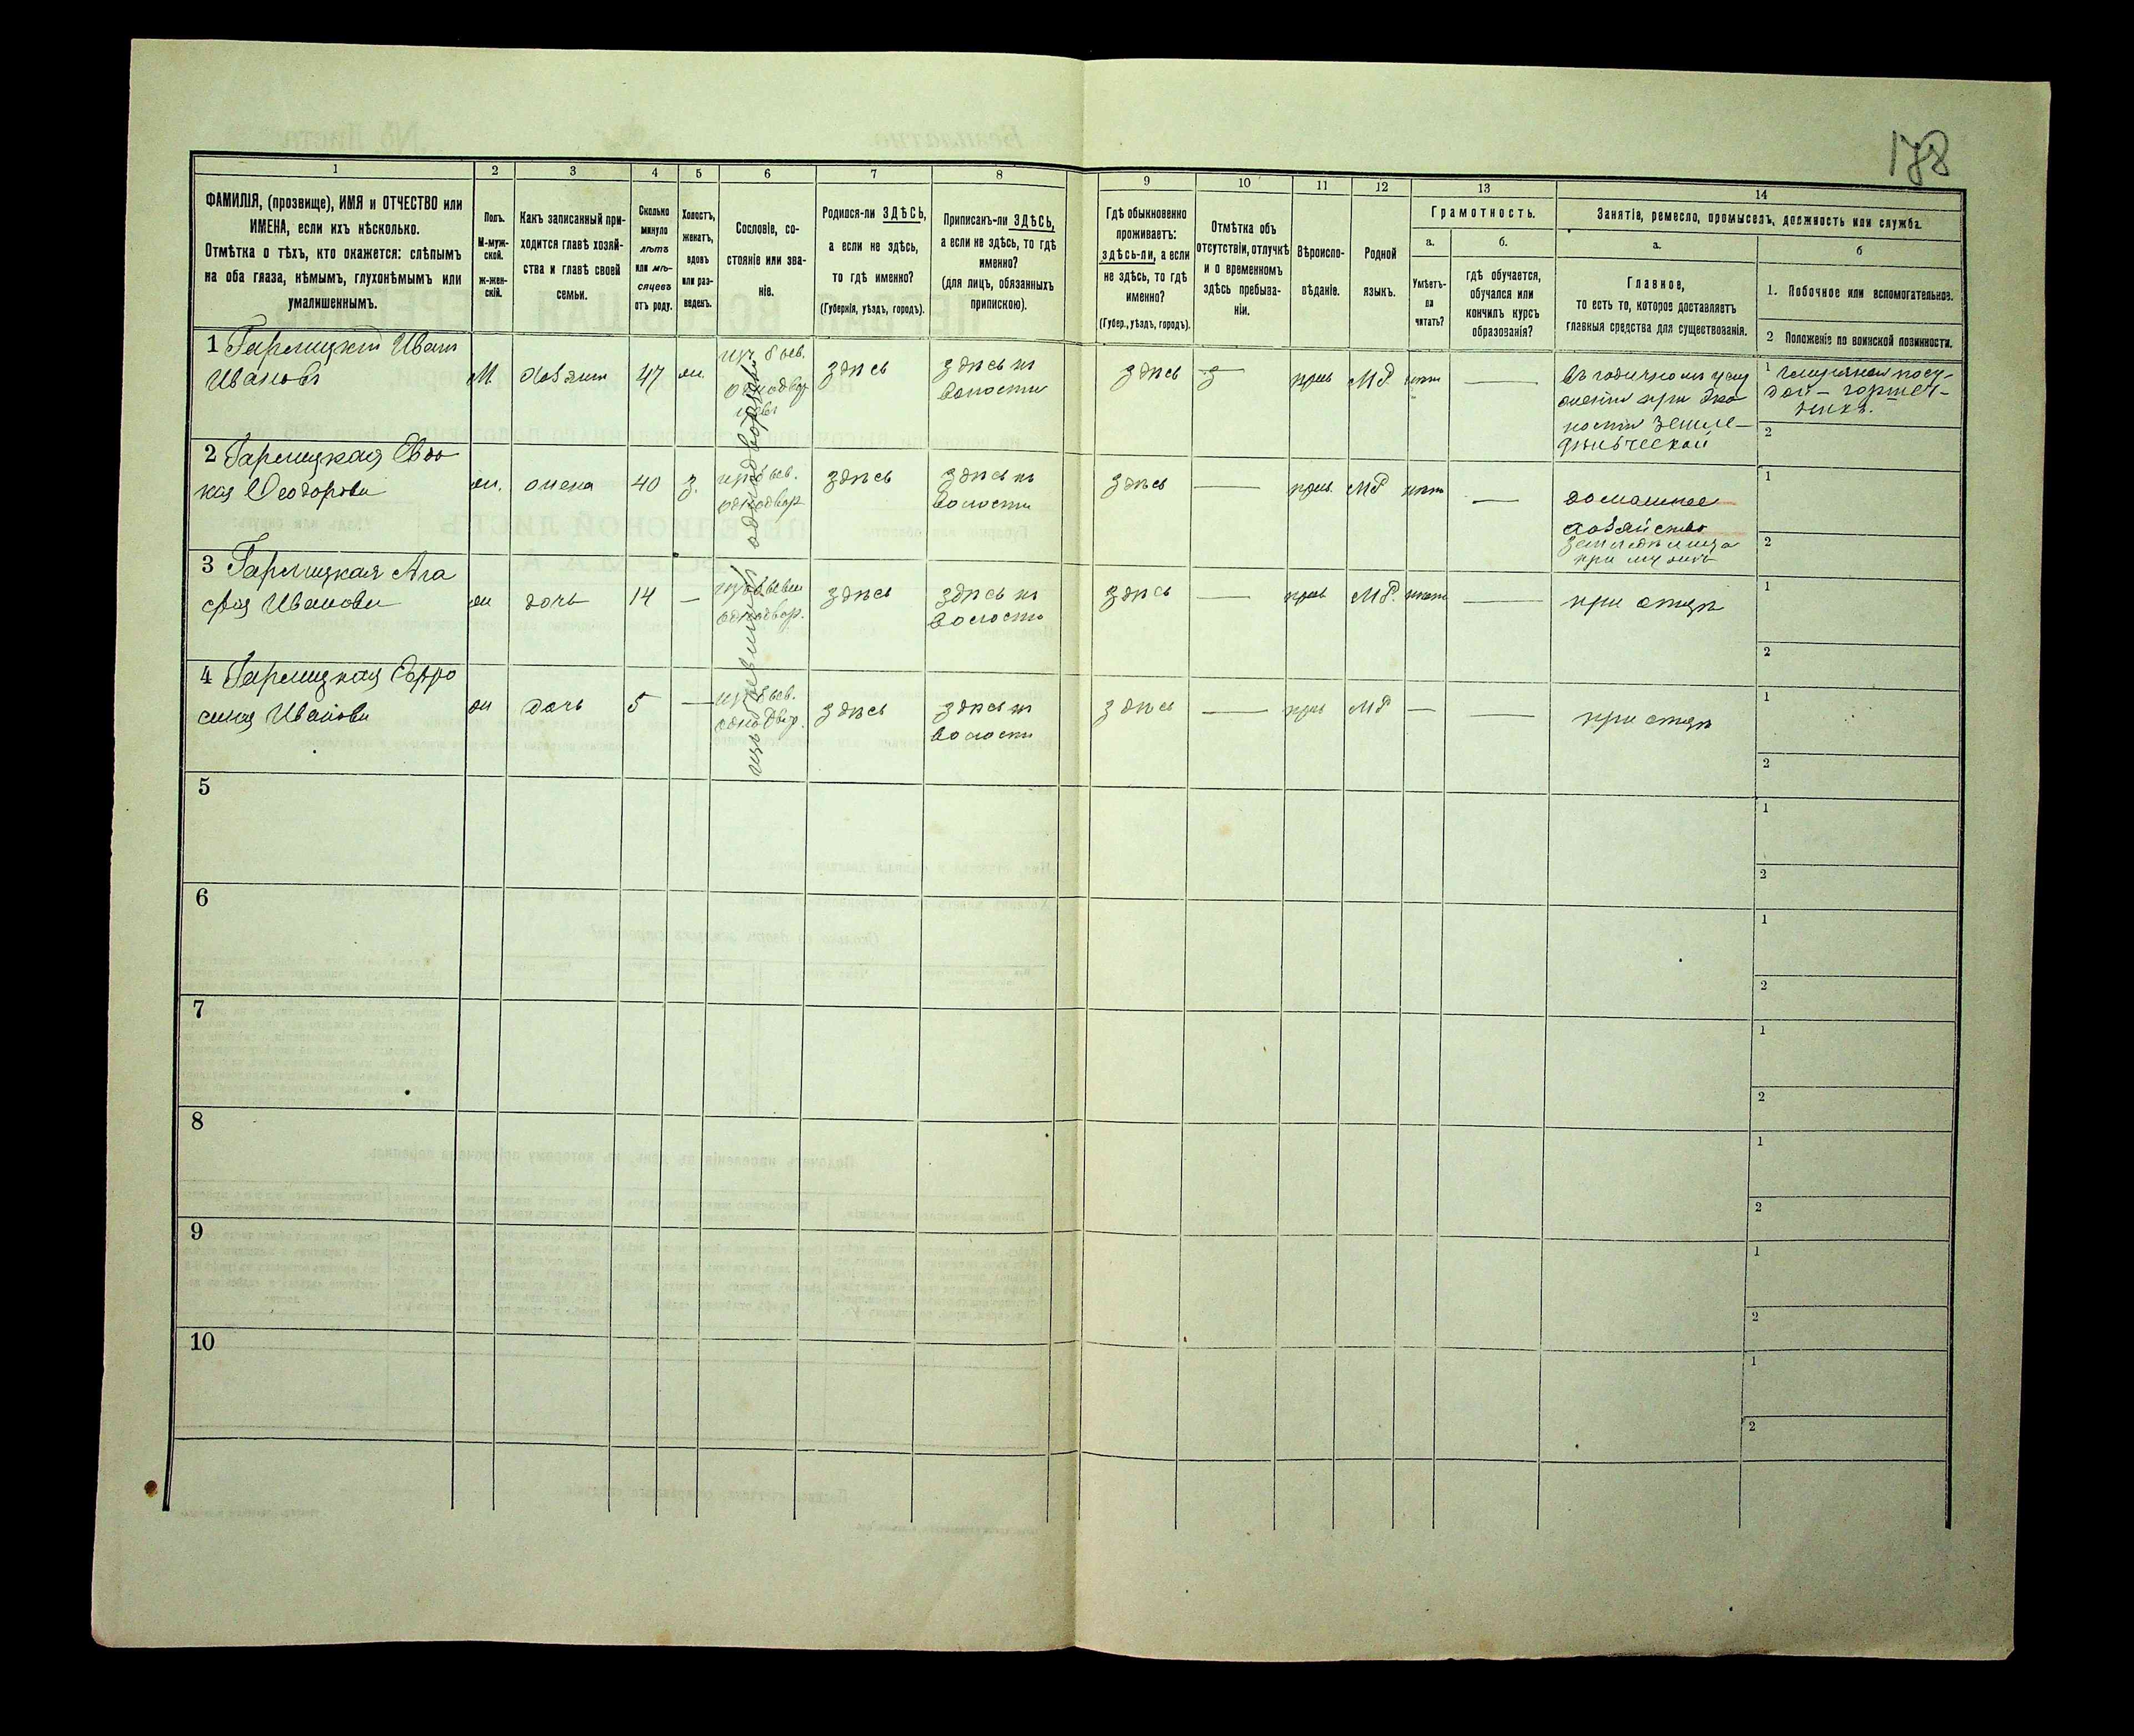 178
1
2
3
4
5
6
7
8
9
10
11
12
13
14
ФАМИЛІЯ, (прозвище), ИМЯ и ОТЧЕСТВО или
ИМЕНА, если ихъ нѣсколько.
Отмѣтка о тѣхъ, кто окажется: слѣпымъ
на оба глаза, нѣмымъ, глухонѣмымъ или
умалишеннымъ.
Полъ.
М-муж-
ской.
ж-жен-
скій.
Какъ записанный при-
ходится главѣ хозяй-
ства и главѣ своей
семьи.
Сколько
минуло
лѣтъ
или мѣ-
сяцевъ
отъ роду.
Холостъ,
женатъ,
вдовъ
или раз-
веденъ.
Сословіе, со-
стояніе или зва-
ніе.
Родился-ли ЗДѢСЬ,
а если не здѣсь,
то гдѣ именно?
(Губернія, уѣздъ, городъ).
Приписанъ-ли ЗДѢСЬ,
а если не здѣсь, то гдѣ
именно?
(для лицъ, обязанныхъ
припискою).
Гдѣ обыкновенно
проживаетъ:
здѣсь-ли, а если
не здѣсь, то гдѣ
именно?
(Губер., уѣздъ, городъ).
Отмѣтка объ
отсутствіи, отлучкѣ
и о временномъ
здѣсь пребыва-
ніи.
Вѣроиспо-
вѣданіе.
Родной
языкъ.
Грамотность.
а.
б.
Умѣетъ-
ли
читать?
гдѣ обучается,
обучался или
кончилъ курсъ
образованія?
Занятіе, ремесло, промыселъ, должность или служба.
а.
б
Главное,
то есть то, которое доставляетъ
главныя средства для существованія.
1. Побочное или вспомогательное.
2 Положеніе по воинской повинности.
1 Гарлицкій Иванъ
Ивановъ
М.
хозяин
47
ж.
из бывш.
однодвор
цевъ
здѣсь
здѣсь въ
волости
здѣсь
прав
МР.
нѣтъ
1
2
2 Гарлицкая Евдо
кія Ѳеодорова
ж.
жена
40
з.
из бывш.
однодвор
здѣсь
здѣсь въ
волости
здѣсь
прав.
МР
нѣтъ
домашнее
хозяйство
при мужѣ
1
2
3 Гарлицкая Ага
фія Иванова
ж
дочь
14
однодвор.
здѣсь
здѣсь въ
волости
здѣсь
прав
МР.
нѣтъ
при отцѣ
1
2
4 Гарлицкая Евфро
синія Иванова
ж
дочь
5
из бывш.
однодвор.
здѣсь
здѣсь въ
волости
здѣсь
прав
МР
при отцѣ
1
2
изъ бывшихъ однодворцевъ
5
1
2
6
1
2
7
1
2
8
1
2
9
1
2
10
1
2